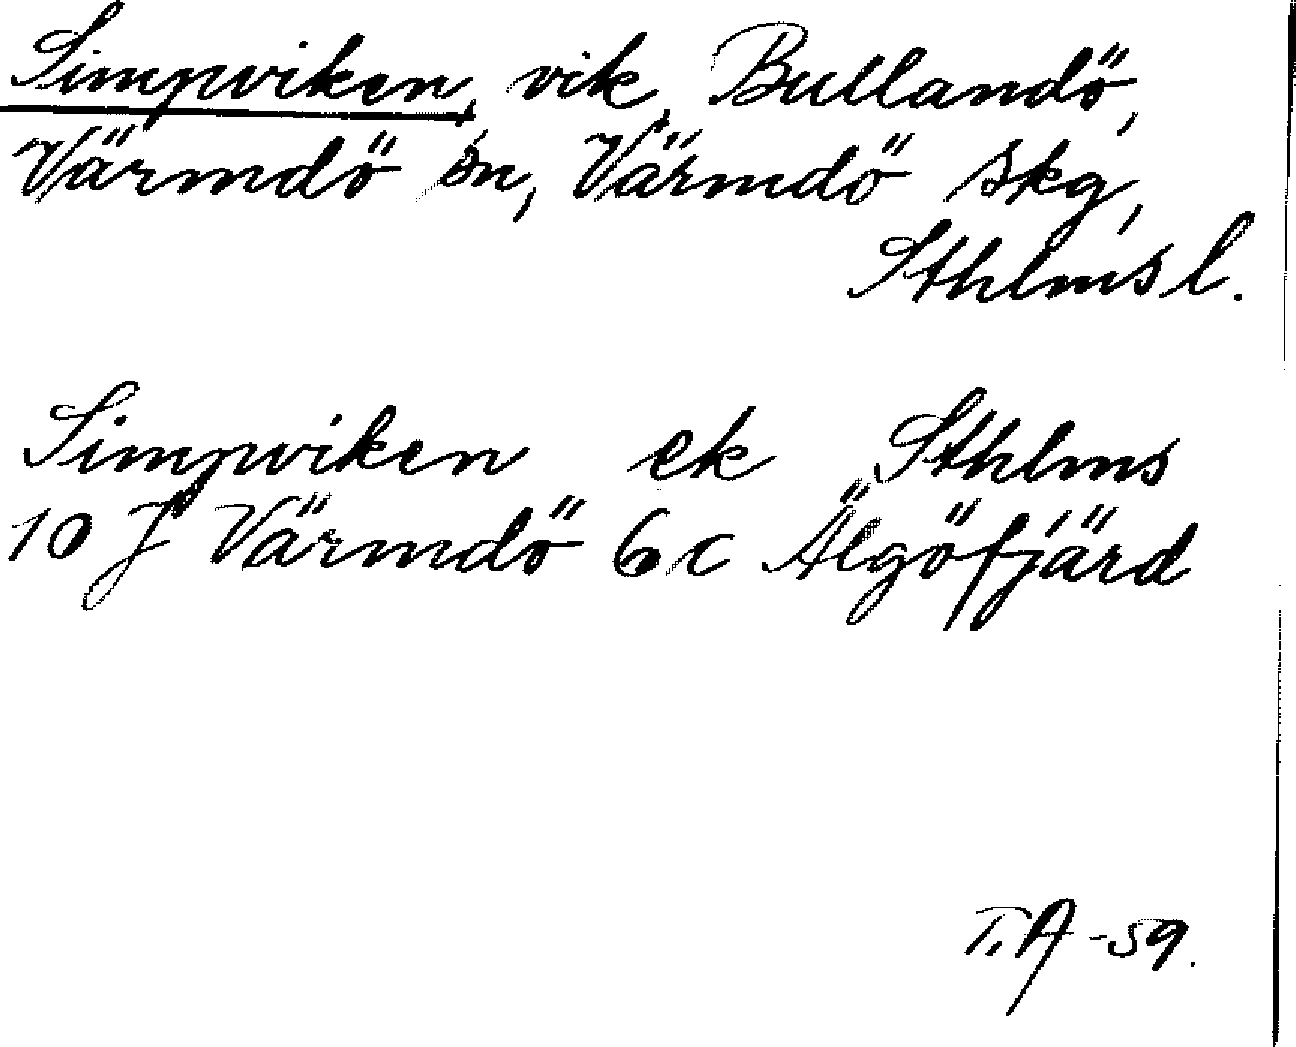 Simpviken, vik, Bullandö,
Värmdö sn, Värmdö skg,
Sthlms l.
Simpviken ek Sthlms
10 J Värmdö 6 c Älgöfjärd
T.A -59.